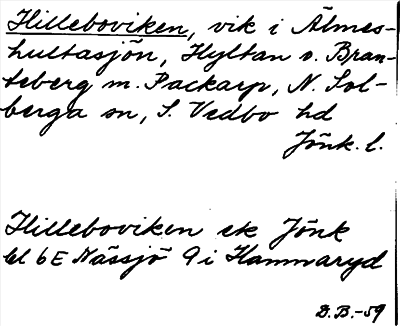 Hilleboviken, vik i Älmes-
hultasjön, Hyltan o. Bran-
teberg m. Packarp, N. Sol-
berga sn, S. Vedbo hd
Jönk. l.
Hilleboviken ek Jönk
bl 6E Nässjö 9 i Hammaryd
D.B.-59